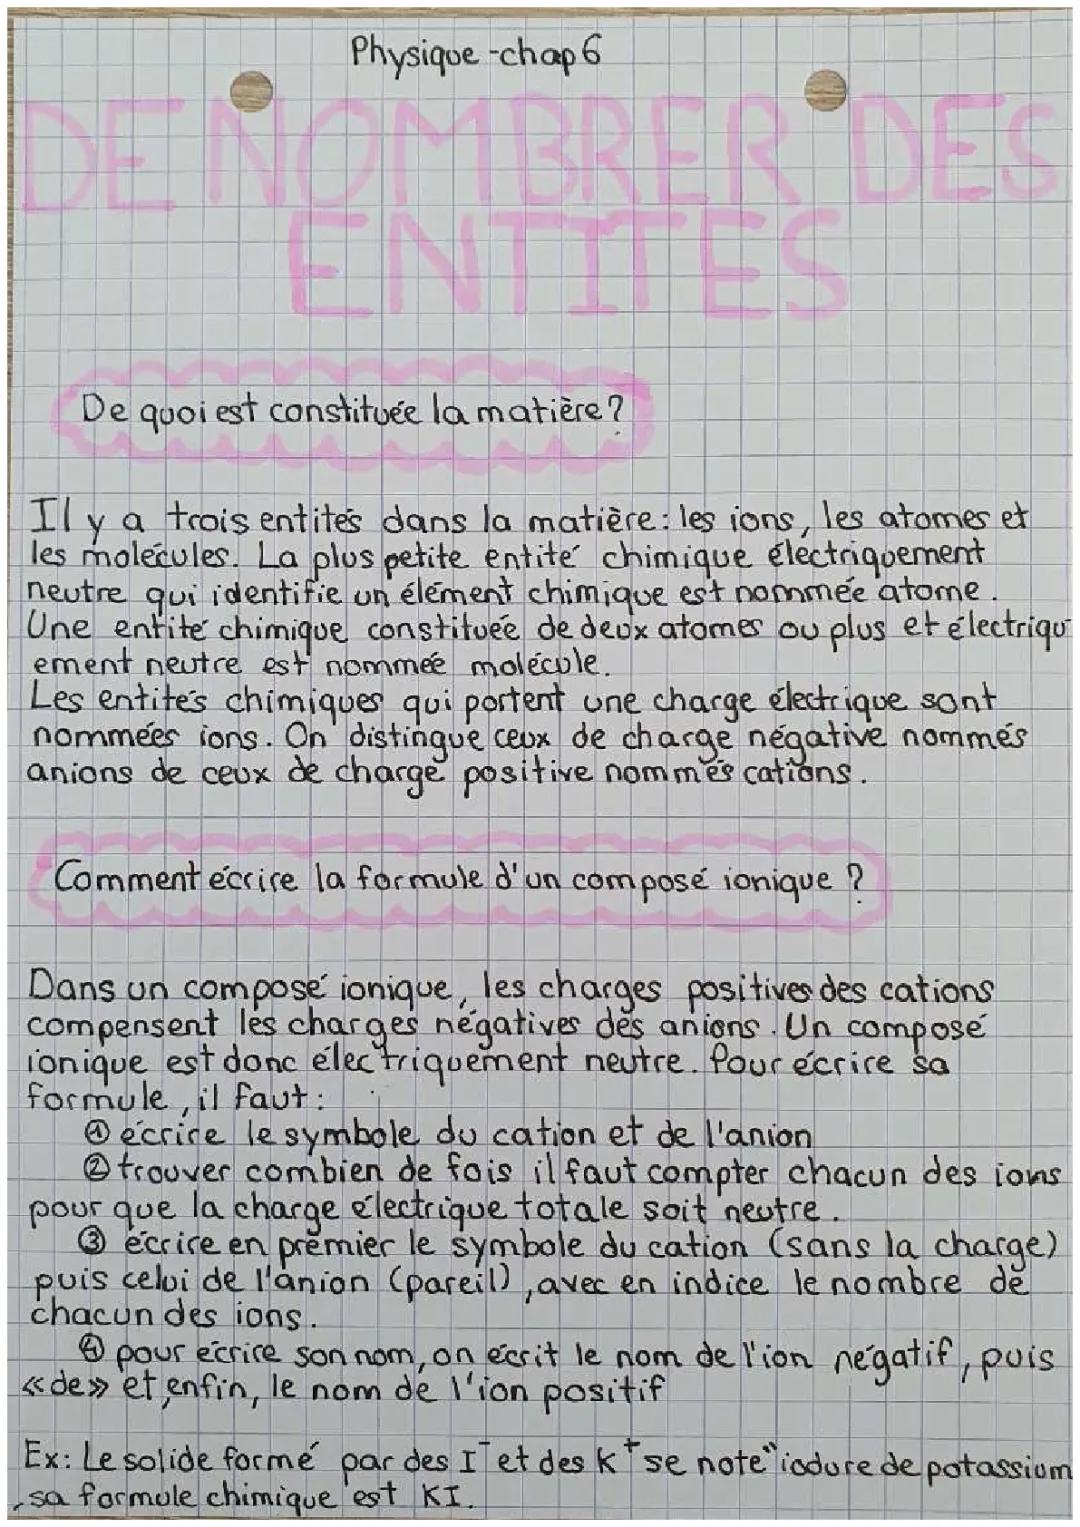 Physique - chap 6
DENOMBRER DES
ENTITES
De quoi est constituée la matière ?
Il y a trois entités dans la matière : les ions, les atomes et
les molécules. La plus petite entité chimique électriquement
neutre qui identifie un élément chimique est nommée atome.
Une entité chimique constituée de deux atomes ou plus et électriqu
ement neutre est nommée molécule.
Les entités chimiques qui portent une charge électrique sont
nommées ions. On distingue ceux de charge négative nommés
anions de ceux de charge positive nommés cations.
Comment écrire la formule d'un composé ionique ?
Dans un composé ionique, les charges positives des cations
compensent les charges négatives des anions. Un composé
ionique est donc électriquement neutre. Pour écrire sa
formule, il faut :
① écrire le symbole du cation et de l'anion
② trouver combien de fois il faut compter chacun des ions
pour que la charge électrique totale soit neutre.
③ écrire en premier le symbole du cation (sans la charge)
puis celui de l'anion (pareil), avec en indice le nombre de
chacun des ions.
④ pour écrire son nom, on écrit le nom de l'ion négatif, puis
«de» et enfin, le nom de l'ion positif
Ex: Le solide formé par des I⁻ et des K⁺ se note "iodure de potassium
, sa formule chimique est KI.